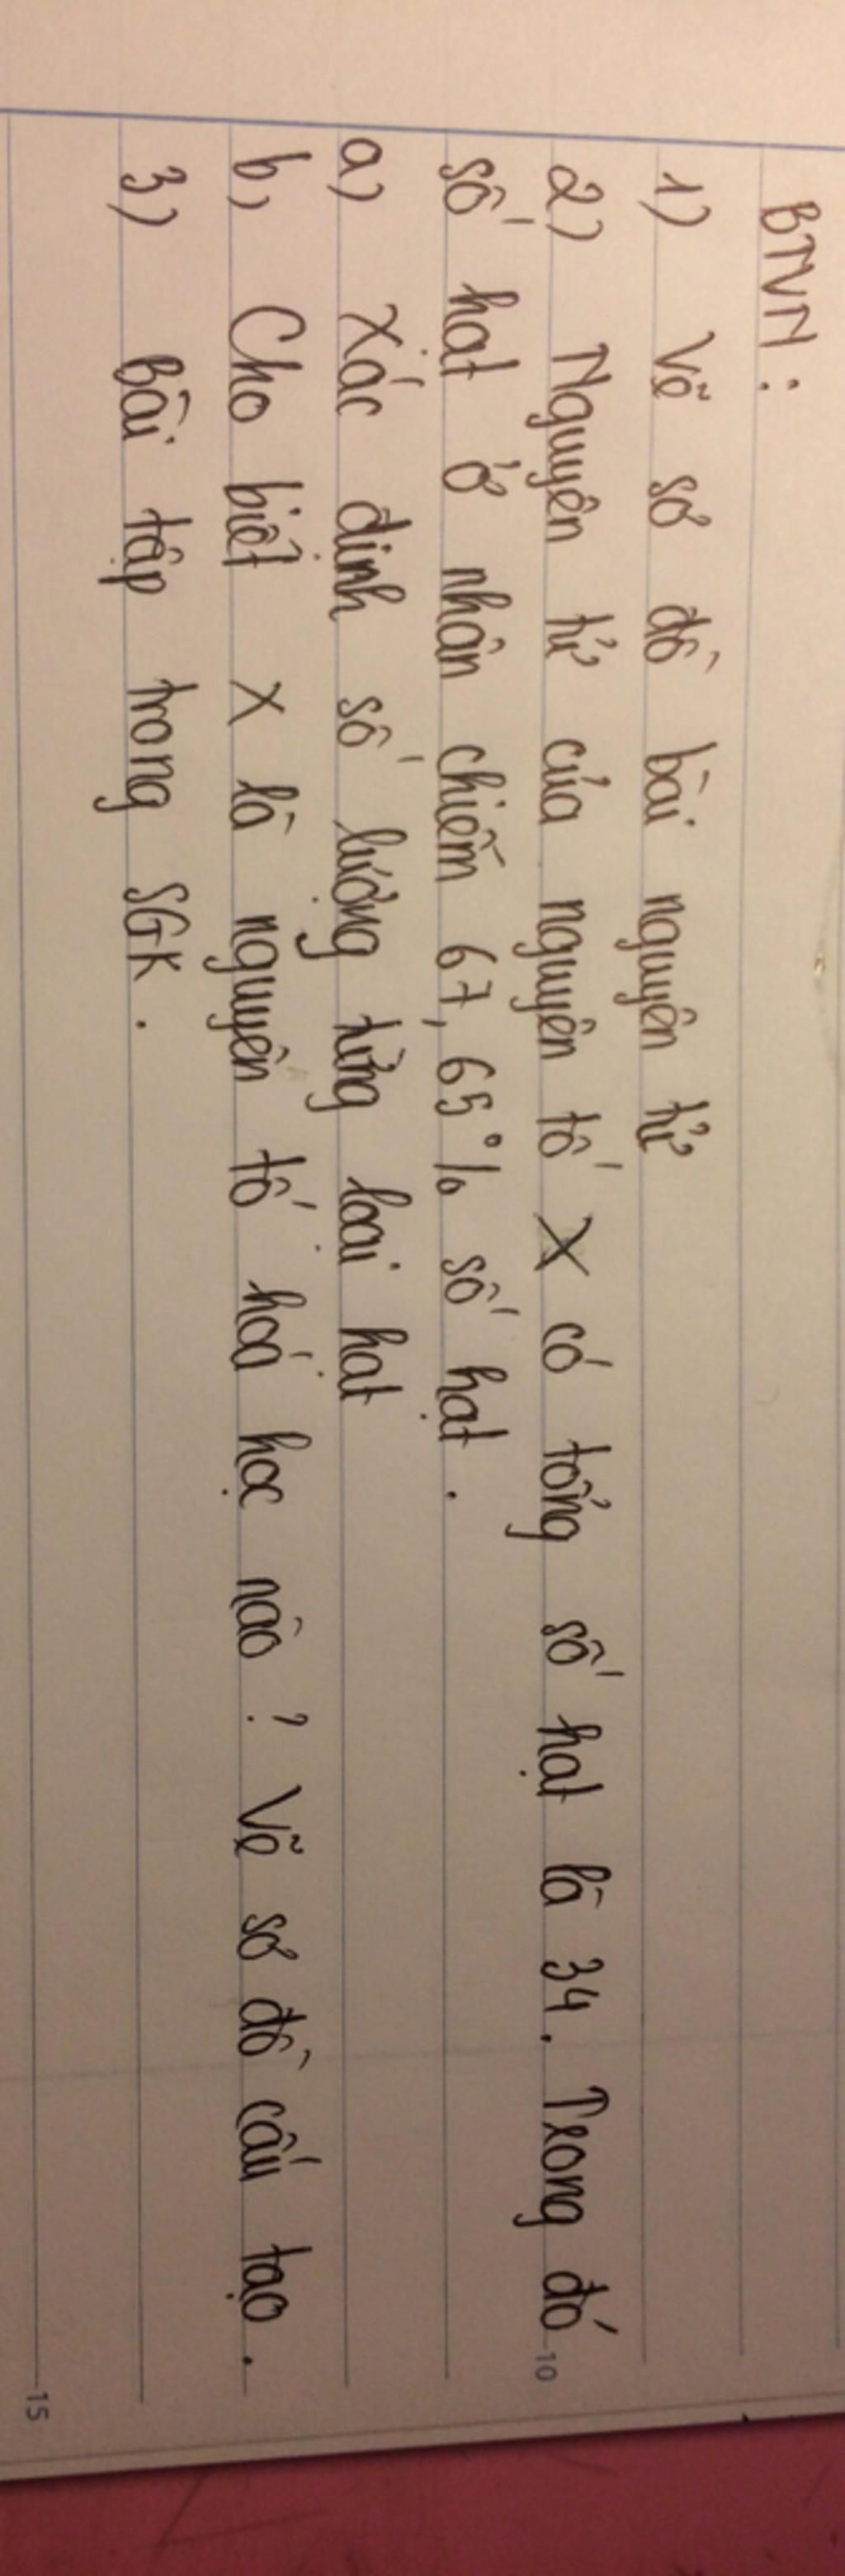 BTVN:
1) Vẽ sơ đồ bài nguyên tử
2) Nguyên tử của nguyên tố X có tổng số hạt là 34. Trong đó
số hạt ở nhân chiếm 67,65% số hạt.
a) Xác định số lượng từng loại hạt
b, Cho biết X là nguyên tố hoá học nào? Vẽ sơ đồ cấu tạo.
3) Bài tập trong SGK.
10
15